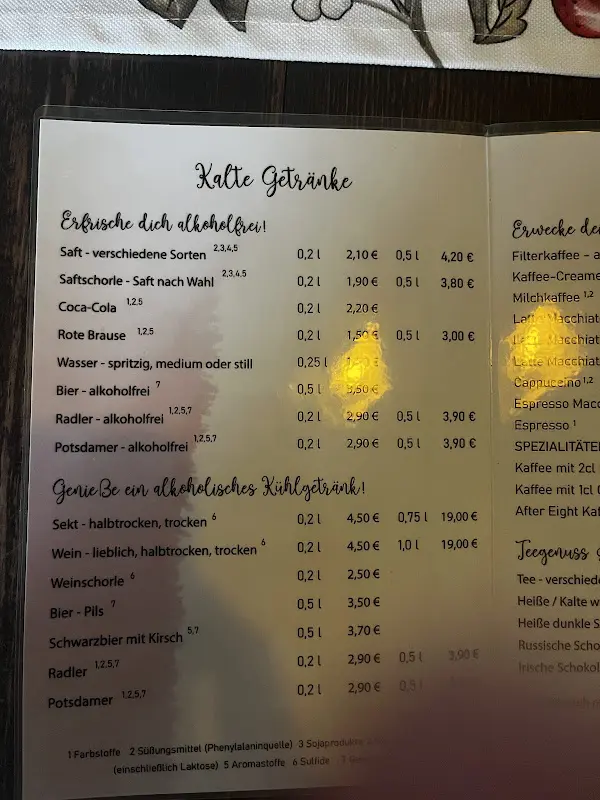 Kalte Getränke
Erfrische dich alkoholfrei!
Saft - verschiedene Sorten 2,3,4,5 0,2 l 2,10 € 0,5 l 4,20 €
Saftschorle - Saft nach Wahl 2,3,4,5 0,2 l 1,90 € 0,5 l 3,80 €
Coca-Cola 1,2,5 0,2 l 2,20 €
Rote Brause 1,2,5 0,2 l 1,50 € 0,5 l 3,00 €
Wasser - spritzig, medium oder still 0,25 l €
Bier - alkoholfrei 7 0,5 l 3,50 €
Radler - alkoholfrei 1,2,5,7 0,2 l 2,90 € 0,5 l 3,90 €
Potsdamer - alkoholfrei 1,2,5,7 0,2 l 2,90 € 0,5 l 3,90 €
Genieße ein alkoholisches Kühlgetränk!
Sekt - halbtrocken, trocken 6 0,2 l 4,50 € 0,75 l 19,00 €
Wein - lieblich, halbtrocken, trocken 6 0,2 l 4,50 € 1,0 l 19,00 €
Weinschorle 6 0,2 l 2,50 €
Bier - Pils 7 0,5 l 3,50 €
Schwarzbier mit Kirsch 5,7 0,5 l 3,70 €
Radler 1,2,5,7 0,2 l 2,90 € 0,5 l 3,90 €
Potsdamer 1,2,5,7 0,2 l 2,90 € 0,5 l
1 Farbstoffe 2 Süßungsmittel (Phenylalaninquelle) 3 Sojaprodukte
(einschließlich Laktose) 5 Aromastoffe 6 Sulfide 7
Erwecke
Filterkaffee -
Kaffee-Creme
Milchkaffee 1,2
Latte Macchiat
Latte Macchiat
Latte Macchiat
Cappuccino 1,2
Espresso Macc
Espresso 1
SPEZIALITÄTE
Kaffee mit 2cl
Kaffee mit 1cl
After Eight Kaf
Teegenuss
Tee - verschied
Heiße / Kalte
Heiße dunkle S
Russische Scho
Irische Schokol